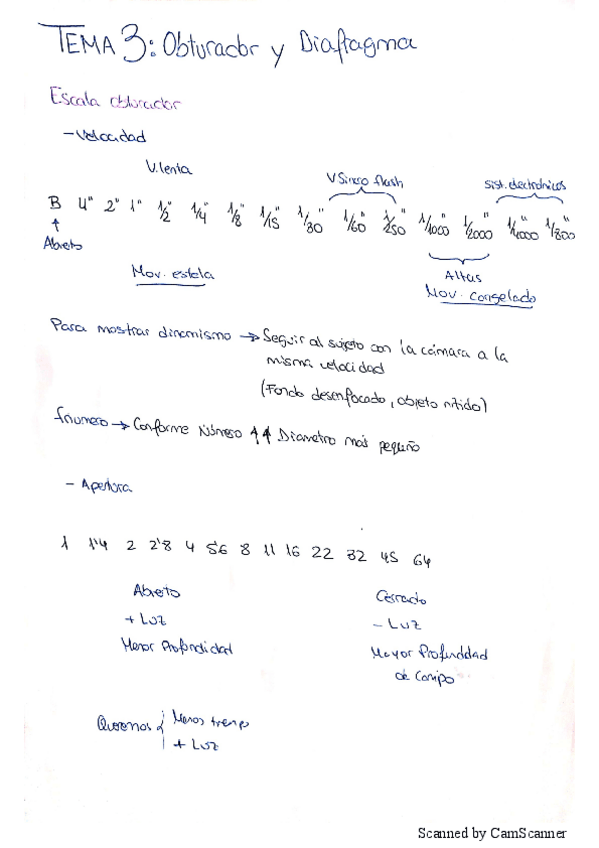 TEMA 3: Obturador y Diafragma
Escala obturador
- Velocidad
V. lenta
V Sincro flash
sist. electrónicos
B 4" 2" 1" 1/2" 1/4" 1/8" 1/15" 1/30" 1/60" 1/250" 1/1000" 1/2000" 1/4000" 1/800"
↑
Abierto
Mov. estela
Altas
Mov. congelado
Para mostrar dinamismo → Seguir al sujeto con la cámara a la
misma velocidad
(Fondo desenfocado, objeto nítido)
fnumero → Conforme Número ↑↑ Diametro más pequeño
- Apertura
1 1'4 2 2'8 4 5'6 8 11 16 22 32 45 64
Abierto
+ Luz
Menor Profundidad
Cerrado
- Luz
Mayor Profundidad
de Campo
Queremos { Menos tiempo
+ Luz
Scanned by CamScanner